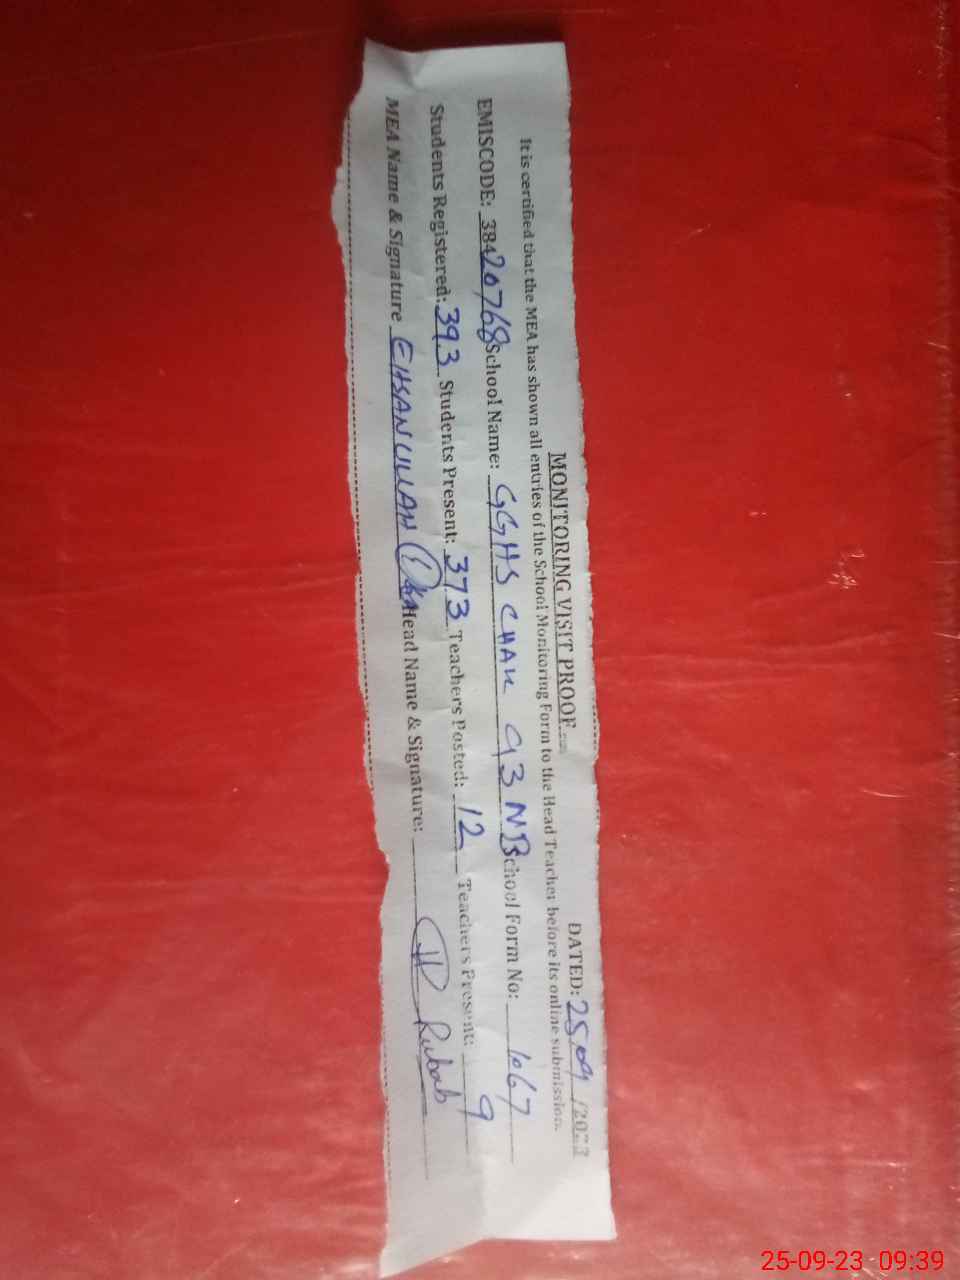 MONITORING VISIT PROOF
DATED: 25 09 /2023
It is certified that the MEA has shown all entries of the School Monitoring Form to the Head Teacher before its online submission.
EMISCODE: 38420768 School Name: GGHS CHAK 93 NB School Form No: 1067
Students Registered: 393 Students Present: 373 Teachers Posted: 12 Teachers Present: 9
MEA Name & Signature EHSANULLAH Head Name & Signature: Rubab
25-09-23 09:39